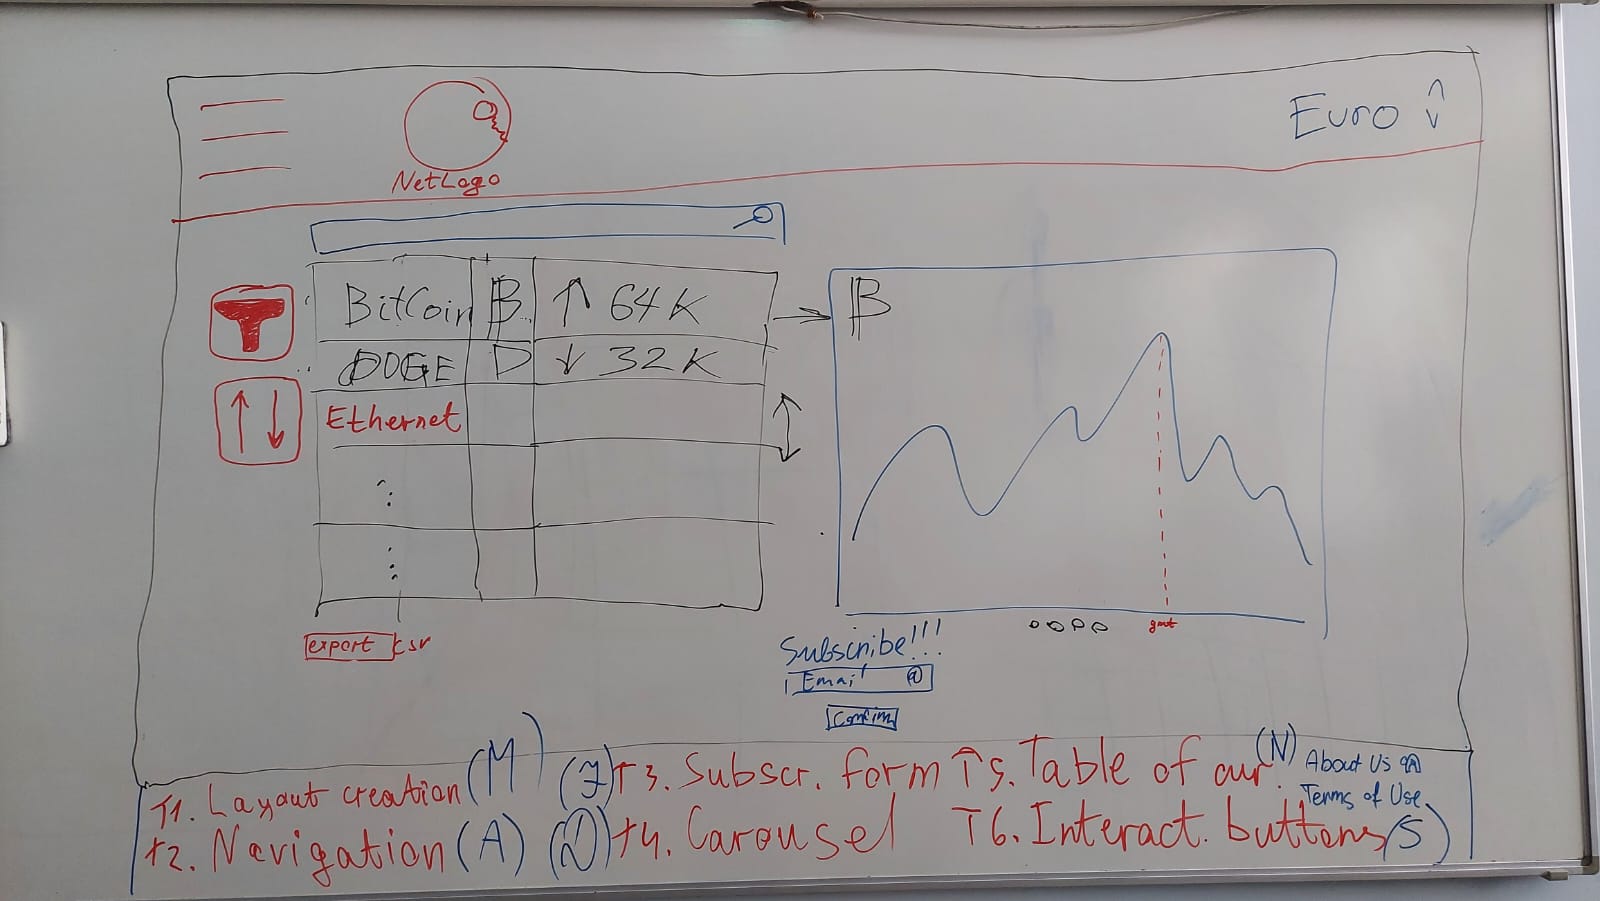 Euro
NetLogo
BitCoin ₿ ↑ 64K
DOGE D ↓ 32K
Ethernet
₿
export csv
gmt
Subscribe!!!
Email @
Confirm
T1. Layout creation (M)
t2. Navigation (A)
(J) t3. Subscr. form
(D) t4. Carousel
T5. Table of cur. (N)
T6. Interact. buttons (S)
About Us
Terms of Use